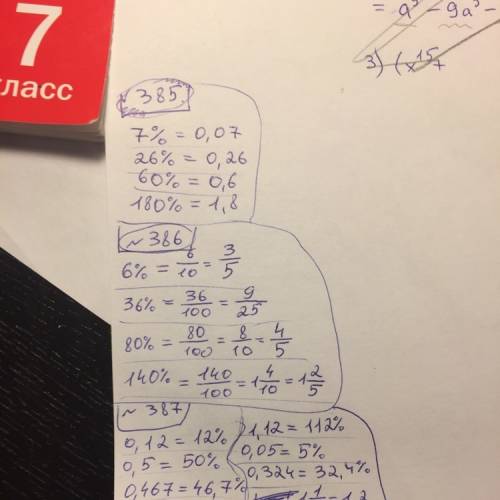 7
ласс
= a³ - 9a³ -
3) (x¹⁵+
385
7% = 0,07
26% = 0,26
60% = 0,6
180% = 1,8
~ 386
6% = 6/10 = 3/5
36% = 36/100 = 9/25
80% = 80/100 = 8/10 = 4/5
140% = 140/100 = 1 4/10 = 1 2/5
~ 387
0,12 = 12%
0,5 = 50%
0,467 = 46,7%
1,12 = 112%
0,05 = 5%
0,324 = 32,4%